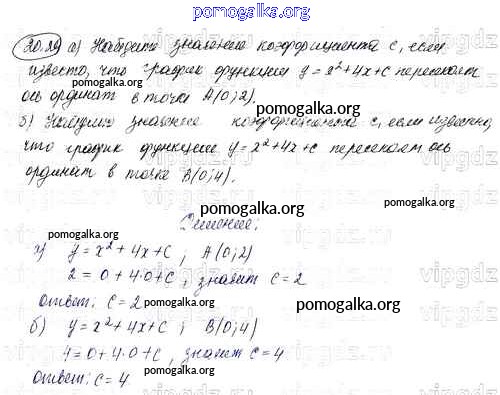 pomogalka.org
20.29 а) Найдите значение коэффициента c, если
известно, что график функции y = x² + 4x + c пересекает
pomogalka.org
ось ординат в точке A(0; 2).
pomogalka.org
б) Найдите значение коэффициента c, если известно,
что график функции y = x² + 4x + c пересекает ось
pomogalka.org
ординат в точке B(0; 4).
pomogalka.org
Решение:
pomogalka.org
а) y = x² + 4x + c ; A(0; 2)
2 = 0 + 4·0 + c, значит c = 2
pomogalka.org
ответ: c = 2
pomogalka.org
б) y = x² + 4x + c ; B(0; 4)
4 = 0 + 4·0 + c, значит c = 4
pomogalka.org
ответ: c = 4
pomogalka.org